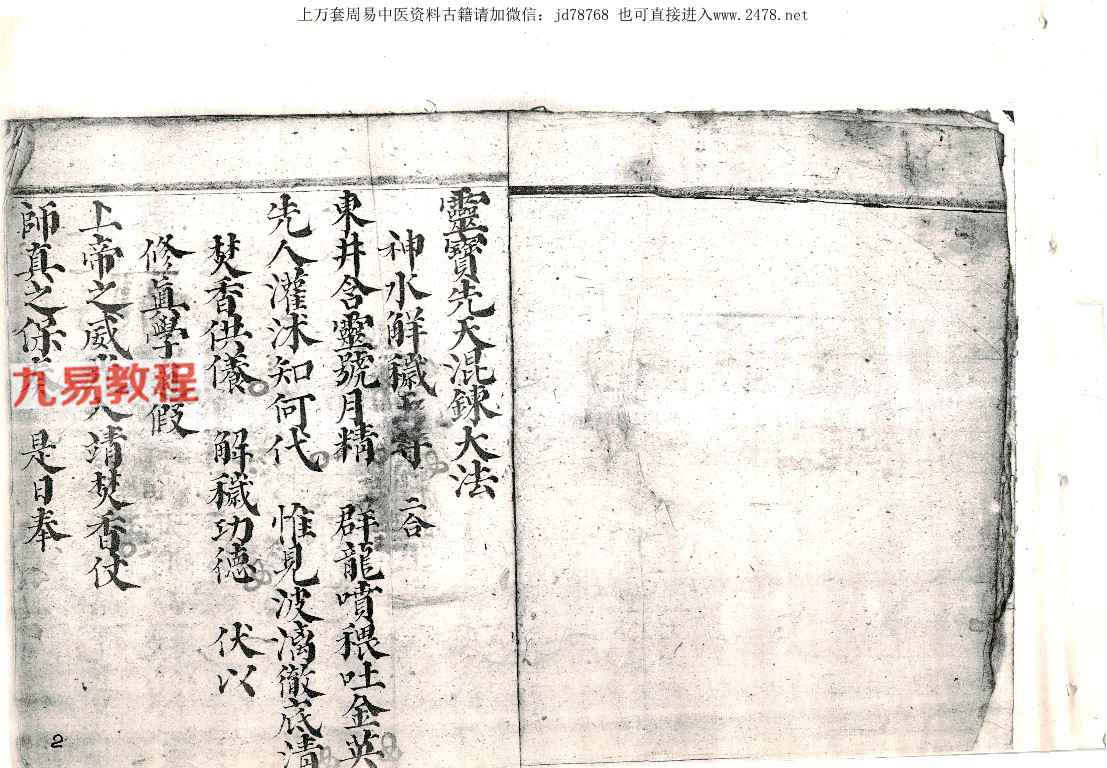 上万套周易中医资料古籍请加微信：jd78768 也可直接进入www.2478.net
靈寶先天混鍊大法
神水解穢 尊 二合
東井含靈號月精 群龍噴穢吐金英
先人灌沐知何代 惟見波漓徹底清
焚香供儀 解穢功德 伏以
修真學 假
上帝之威 靖焚香仗
師真之保 是日奉
九易教程
2